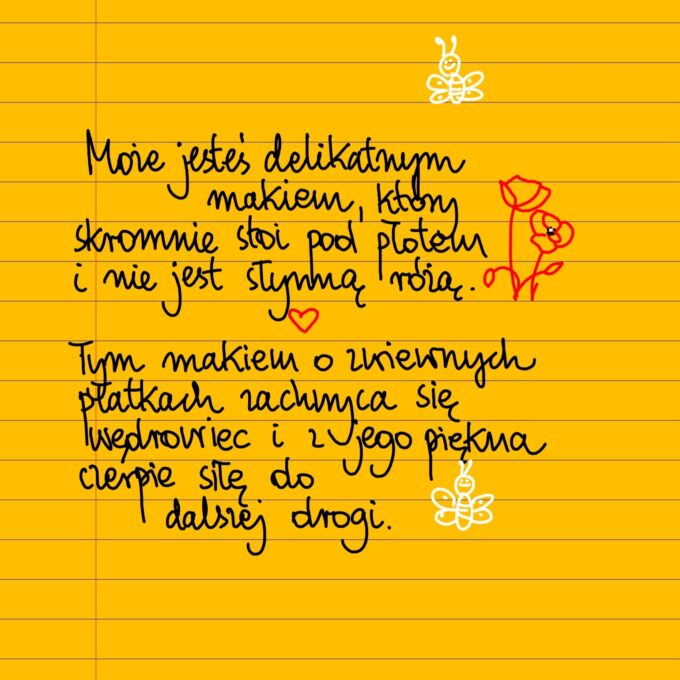 Może jesteś delikatnym
makiem, który
skromnie stoi pod płotem
i nie jest słynną różą.
Tym makiem o zwiewnych
płatkach zachwyca się
wędrowiec i z jego piękna
czerpie siłę do
dalszej drogi.